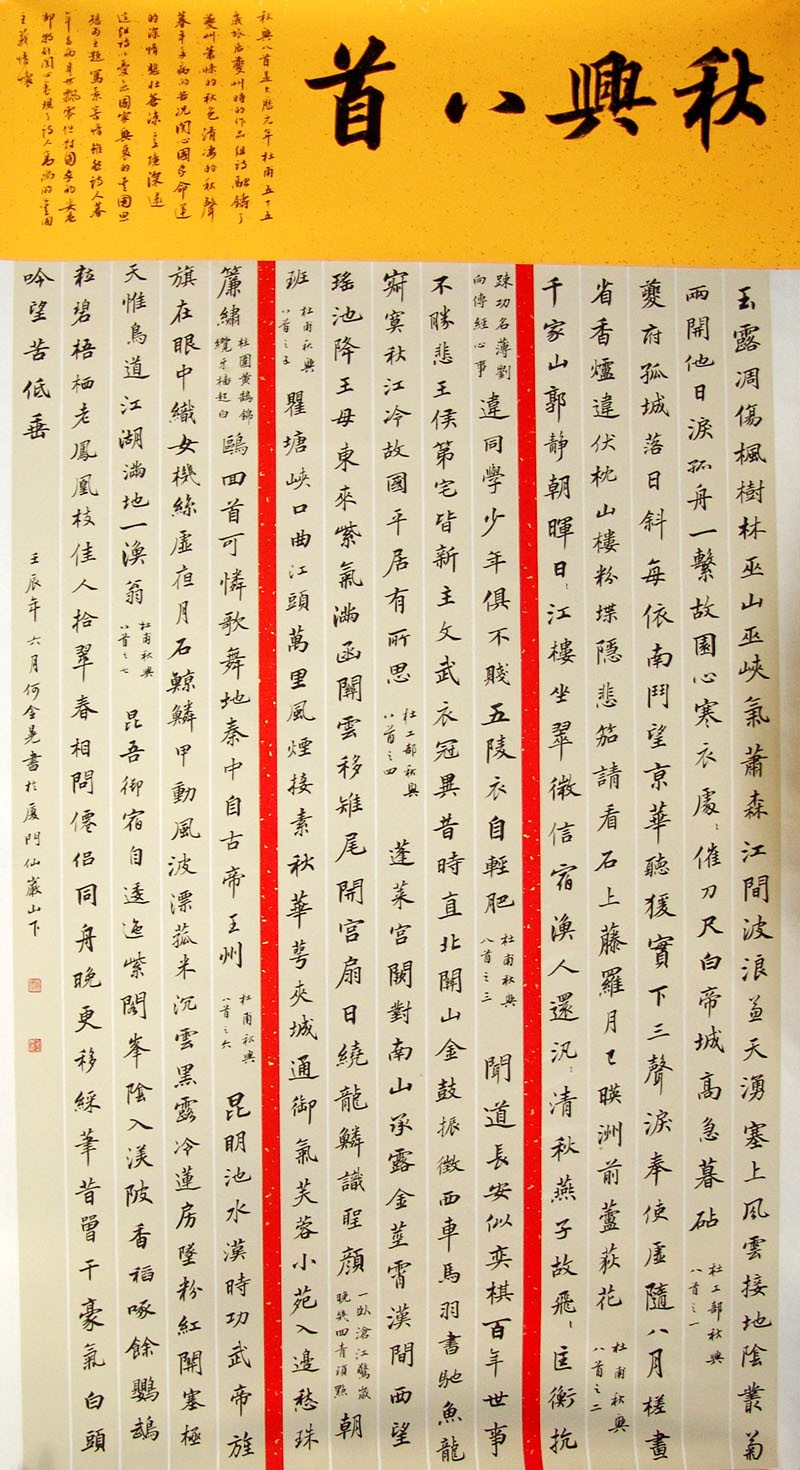 秋興八首
秋兴八首是大历元年杜甫五十五
岁旅居夔州时的作品组诗融铸了
夔州萧条的秋色清凄的秋声
暮年多病的苦况关心国家命运
的深情悲壮苍凉意境深远
这组诗以忧念国家兴衰的爱国思
想为主题
玉露凋傷楓樹林巫山巫峽氣蕭森江間波浪兼天湧塞上風雲接地陰叢菊
兩開他日淚孤舟一繫故園心寒衣處〻催刀尺白帝城高急暮砧 杜工部秋興八首之一
夔府孤城落日斜每依南鬥望京華聽猨實下三聲淚奉使虛隨八月槎畫
省香爐違伏枕山樓粉堞隱悲笳請看石上藤羅月已暎洲前蘆荻花 杜甫秋興八首之二
千家山郭靜朝暉日〻江樓坐翠微信宿漁人還汎〻清秋燕子故飛〻匡衡抗
疎功名薄劉向傳經心事違同學少年俱不賤五陵衣自輕肥 杜甫秋興八首之三 聞道長安似奕棋百年世事
不勝悲王侯第宅皆新主文武衣冠異昔時直北關山金鼓振徵西車馬羽書馳魚龍
寂寞秋江冷故國平居有所思 杜工部秋興八首之四 蓬萊宮闕對南山承露金莖霄漢間西望
瑤池降王母東來紫氣滿函關雲移雉尾開宮扇日繞龍鱗識聖顏一臥滄江驚歲晚幾回青瑣點朝
班 杜甫秋興八首之五 瞿塘峽口曲江頭萬里風煙接素秋華萼夾城通御氣芙蓉小苑入邊愁珠
簾繡柱圍黃鵠錦纜牙檣起白鷗回首可憐歌舞地秦中自古帝王州 杜甫秋興八首之六 昆明池水漢時功武帝旌
旗在眼中織女機絲虛夜月石鯨鱗甲動風波漂菰米沉雲黑露冷蓮房墜粉紅關塞極
天惟鳥道江湖滿地一漁翁 杜甫秋興八首之七 昆吾御宿自逶迤紫閣峯陰入渼陂香稻啄餘鸚鵡
粒碧梧栖老鳳凰枝佳人拾翠春相問僊侶同舟晚更移綵筆昔曾干豪氣白頭
吟望苦低垂 壬辰年六月何金晃書於廈門仙巖山下